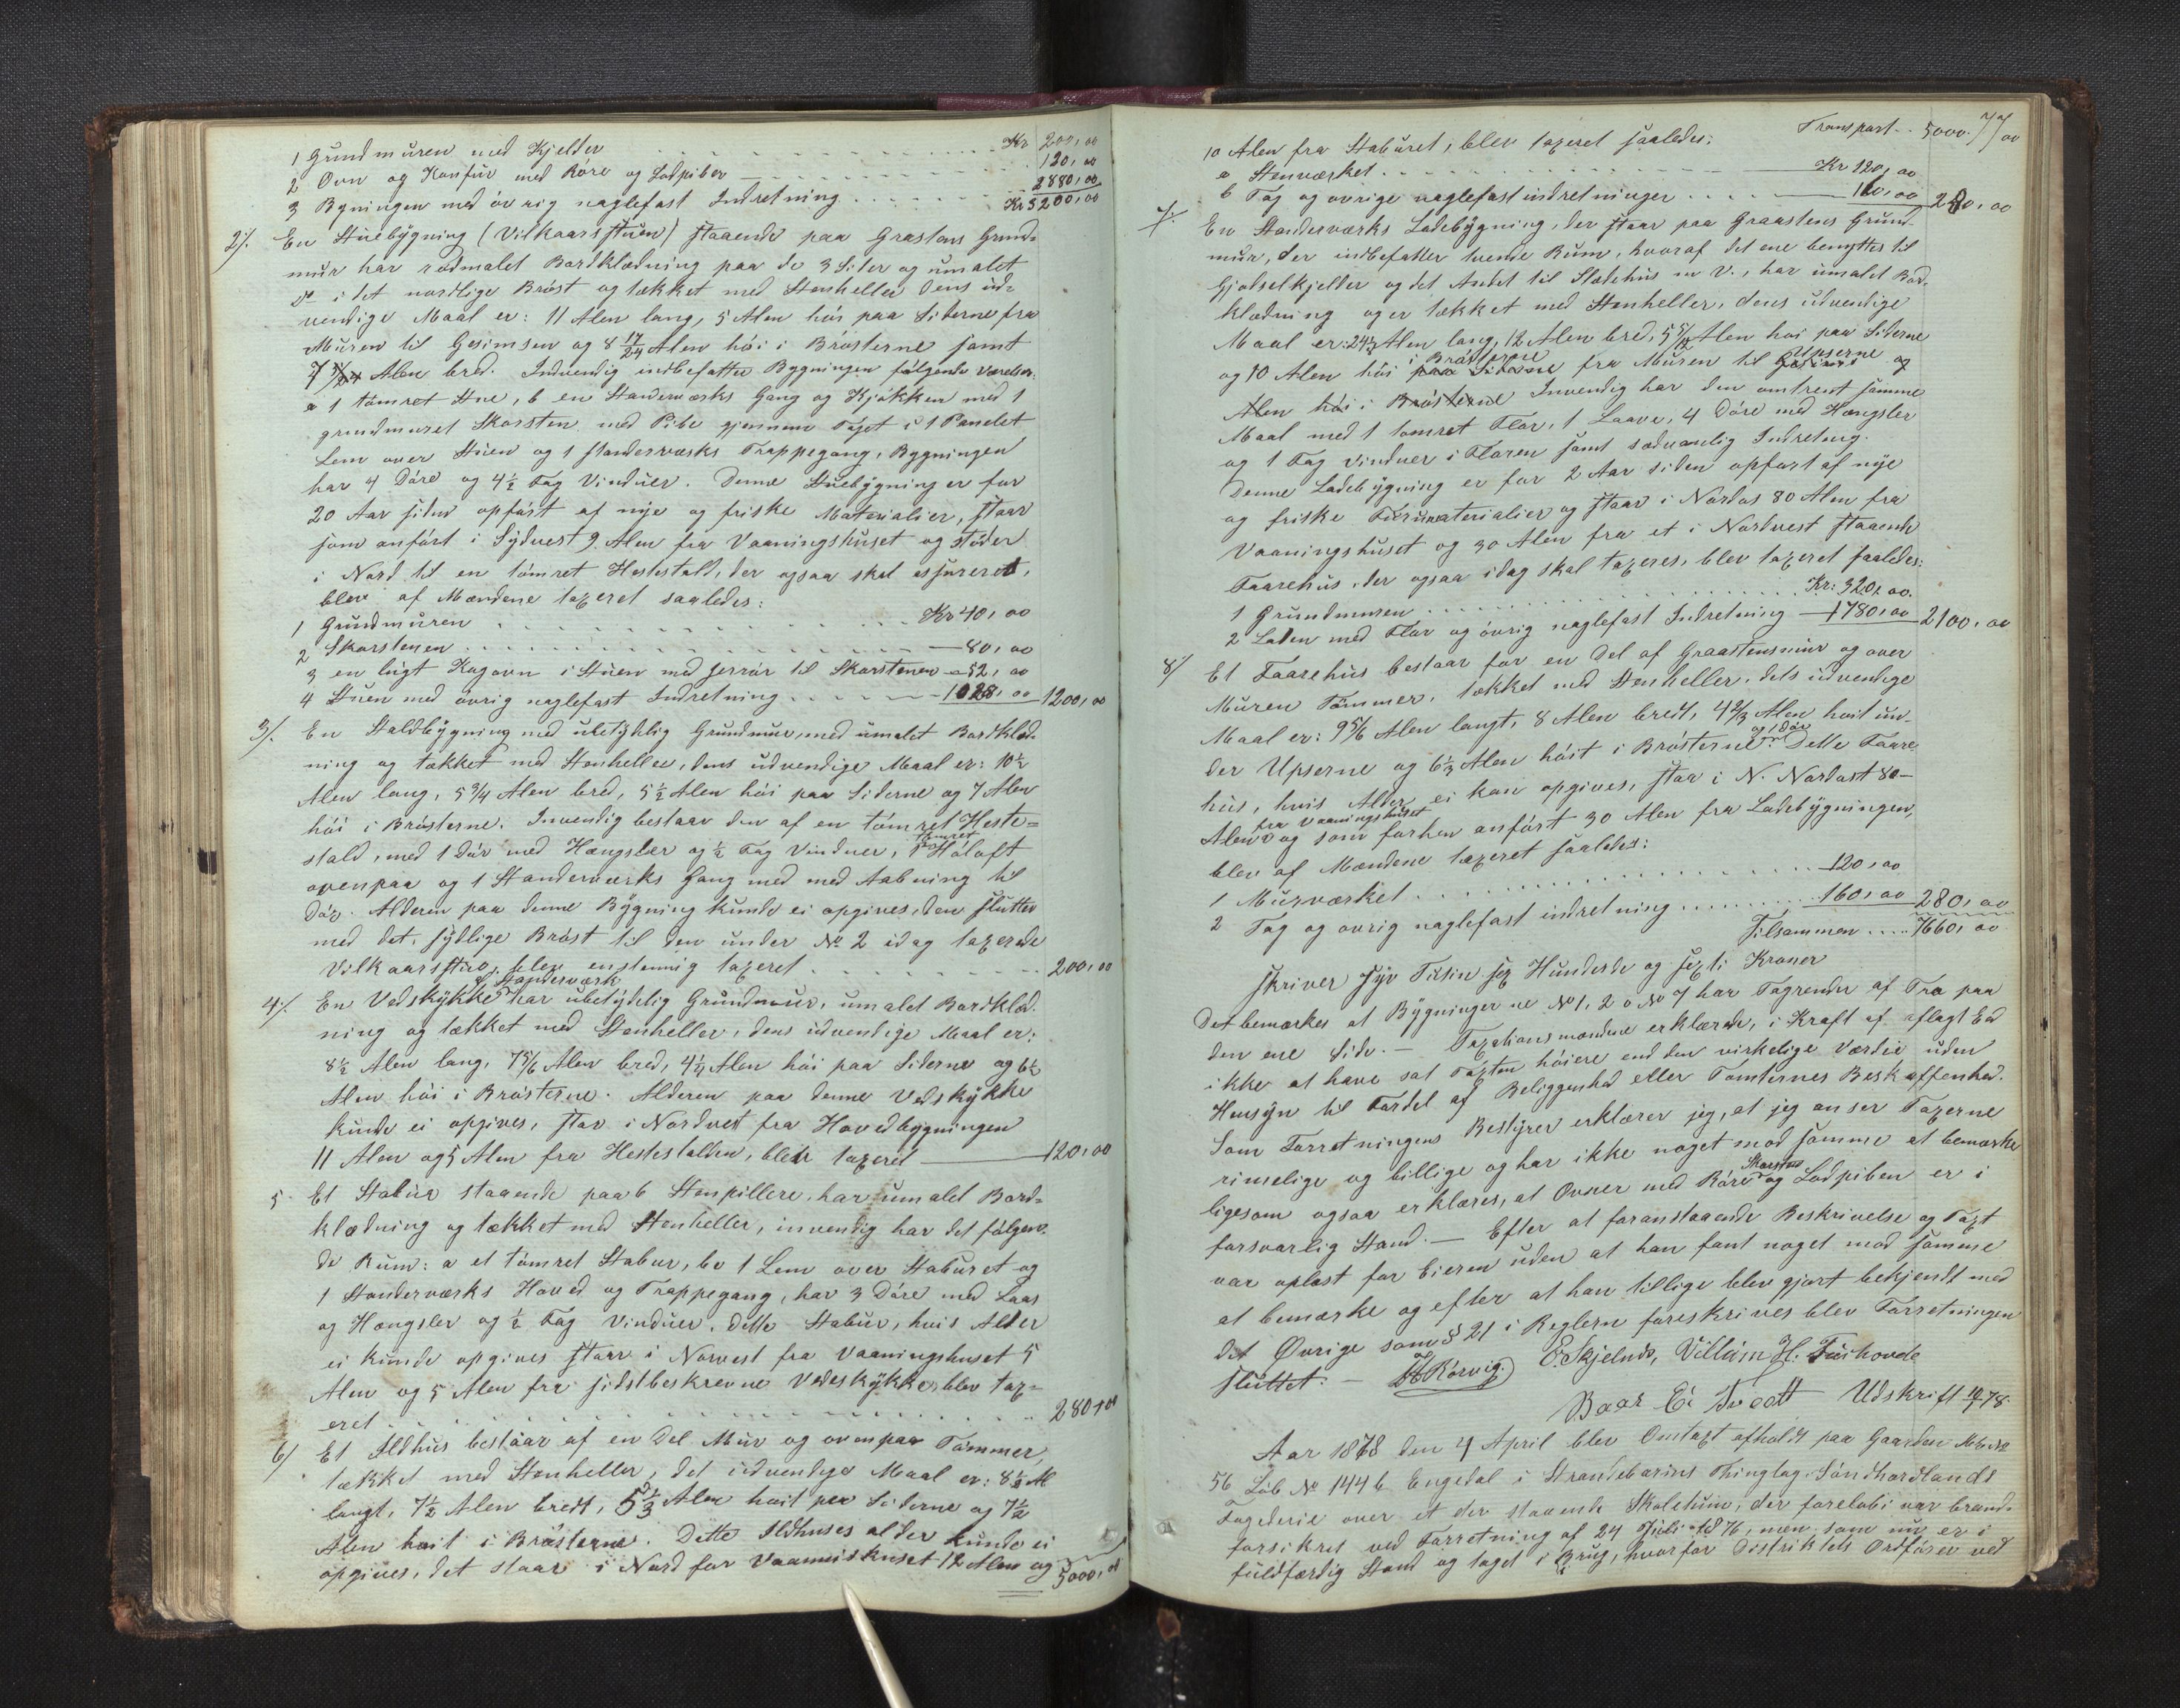 1 Grundmuren med Kjelder . . . Kr 200,00
2 Ovn og Komfur med Röre og Ladpiber — 120,00
3 Bygningen med övrig naglefast Indretning . . . 2880,00
Kr 3200,00
2/. En Stuebygning (Vilkaarsstuen) staaende paa Graastens Grund-
mur har rödmalet Bordklædning paa de 3 Sider og umalet
do i det nordlige Bröst og tækket med Stenheller dens ud-
vendige Maal er: 11 Alen lang, 5 Alen höi paa Siderne fra
Muren til Gesimsen og 8 17/24 Alen höi i Brösterne samt
7 Alen bred. Indvendig indbefatter Bygningen fölgende Værelser:
a 1 tömret Stue, b en Standerværks Gang og Kjökken med 1
grundmuret Skorsten med Pibe gjennem Taget c 1 Panelet
Lem over Stuen og 1 standerværks Trappegang, Bygningen
har 4 Döre og 4½ Fag Vinduer. Denne Stuebygning er for
20 Aar siden opfört af nye og friske Materialier, staar
som anfört i Sydvest 9 Alen fra Vaaningshuset og stöder
i Nord til en tömret Hestestald, der ogsaa skal assureret,
blev af Mændene taxeret saaledes:
1 Grundmuren . . . Kr 40,00
2 Skorstenen . . . — 80,00
3 en lugt Kogovn i Stuen med Jernrör til Skorstenen — 52,00
4 Stuen med övrig naglefast Indretning . . . — 1028,00 1200,00
3/. En Staldbygning med ubetydelig Grundmur, med umalet Bordklæd-
ning og tækket med Stenheller, dens udvendige Maal er: 10½
Alen lang, 5¾ Alen bred, 5½ Alen höi paa Siderne og 7 Alen
höi i Brösterne. Invendig bestaar den af en tömret Heste-
stald, med 1 Dör med Hængsler og ½ Fag Vinduer, 1 tömret Höloft
ovenpaa og 1 Standerværks Gang med med Aabning til
Dör. Alderen paa denne Bygning kunde ei opgives, den slutter
med det sydlige Bröst til den under No 2 idag taxerede
Vilkaarsstue, blev enstemmig taxeret . . . 200,00
4/. En Vedskykke af Standerværk har ubetydelig Grundmur, umalet Bordklæd-
ning og tækket med Stenheller, dens udvendige Maal er:
8½ Alen lang, 7 5/6 Alen bred, 4¼ Alen höi paa Siderne og 6½
Alen höi i Brösterne. Alderen paa denne Vedskykke
kunde ei opgives, star i Nordvest fra Hovedbygningen
11 Alen og 5 Alen fra Hestestalden, blev taxeret — 120,00
5 Et Stabur staaende paa 6 Stenpillere, har umalet Bord-
klædning og tækket med Stenheller, invendig har det fölgen-
de Rum: a et tömret Stabur, b 1 Lem over Staburet og
1 Standerværks Hoved og Trappegang, har 3 Döre med Laas
og Hængsler og ½ Fag Vinduer. Dette Stabur, hvis Alder
ei kunde opgives staar i Norvest fra Vaaningshuset 5
Alen og 5 Alen fra sidstbeskrevne Vedeskykke, blev tax-
eret . . . 280,00
6/ Et Ildhus bestaar af en Del Mur og ovenpaa Tömmer,
tækket med Stenheller, det udvendige Maal er: 8½ Al
langt, 7½ Alen bredt, 5⅓ Alen höit paa Siderne og 7½
Alen höit i Brösterne. Dette Ildhuses alder kunde ei
opgives, det staar i Nord for Vaaningshuset 12 Alen og 5000,00
Transport . . 5000,00
77
10 Alen fra Staburet, blev taxeret saaledes:
a Stenværket . . . Kr 120,00
b Tag og övrige naglefast indretninger . . . — 160,00 280,00
7/. En Standerværks Ladebygning, der staar paa Graastens Grund-
mur, der indbefatter tvende Rum, hvoraf det ene benyttes til
Gjödselkjelder og det Andet til Slædehus m v., har umalet Bord-
klædning og er tækket med Stenheller, dens udvendige
Maal er: 24⅓ Alen lang, 12 Alen bred, 5 Alen höi paa Siderne
og 10 Alen höi i Brösterne paa Siderne fra Muren til Upserne Gesims og
Alen höi i Brösterne Invendig har den omtrent samme
Maal med 1 tömret Flor, 1 Laave, 4 Döre med Hængsler
og 1 Fag Vinduer i Floren samt sædvanlig Indretning.
Denne Ladebygning er for 2 Aar siden opfört af nye
og friske Furumaterialier og staar i Nordos 80 Alen fra
Vaaningshuset og 30 Alen fra et i Nordvest staaende
Faarehus, der ogsaa idag skal taxeres, blev taxeret saaledes:
1 Grundmuren . . . Kr: 320,00.
2 Laden med Flor og övrig naglefast Indretning — 1780,00 2100,00
8/ Et Faarehus bestaar for en Del af Graastensmur og over
Muren Tömmer, tækket med Stenheller, dets udvendige
Maal er: 9 5/6 Alen langt, 8 Alen bredt, 4⅔ Alen höit un-
der Upserne og 6⅓ Alen höit i Brösterne og 1 Dör. Dette Faare
hus, hvis Alder ei kan opgives, star i N. Nordost 80-
Alen fra Vaaningshuset og som forhen anfört 30 Alen fra Ladebygningen,
blev af Mændene taxeret saaledes:
1 Murværket . . . 120,00
2 Tag og övrig naglefast indretning . . . 160,00 280,00
Tilsammen . . . . 7660,00
skriver Syv Tusin sex Hundrede og sexti Kroner
Det bemærkes at Bygningerne No 1, 2 o No 7 har Tagrender af Træ paa
den ene Side. — Taxationsmændene erklærede, i Kraft af aflagt Eed
ikke at have sat Taxten höiere end den virkelige Værdie uden
Hensyn til Fordel af Beliggenhed eller Tomternes Beskaffenhed.
Som Forretningens Bestyrer erklærer jeg, at jeg anser Taxerne
rimelige og billige og har ikke noget mod samme at bemærke
ligesom ogsaa erklæres, at Ovner med Röre Skorsten og Ladpiben er i
forsvarlig Stand. — Efter at foranstaaende Beskrivelse og Taxt
var oplæst for Eieren uden at han fant noget mod samme
at bemærke og efter at han tillige blev gjort bekjendt med
det Øvrige som § 21 i Reglern foreskrives blev Forretningen
sluttet. — Rörvig. E. Skjelnes, Villum H. Fuishovde
Baar Ei Tvedt Udskrift 78.
Aar 1878 den 4 April blev Omtaxt afholdt paa Gaarden
56 Löb No 144 b Engedal i Strandebarms Thinglag Söndhordlands
Fogederie over et der staaende Skolehuus, der forelöbi var brand-
forsikret ved Forretning af 24 Juli 1876, men som nu er i
fuldfærdig Stand og taget i Brug, hvorfor Distriktets Ordförer ved